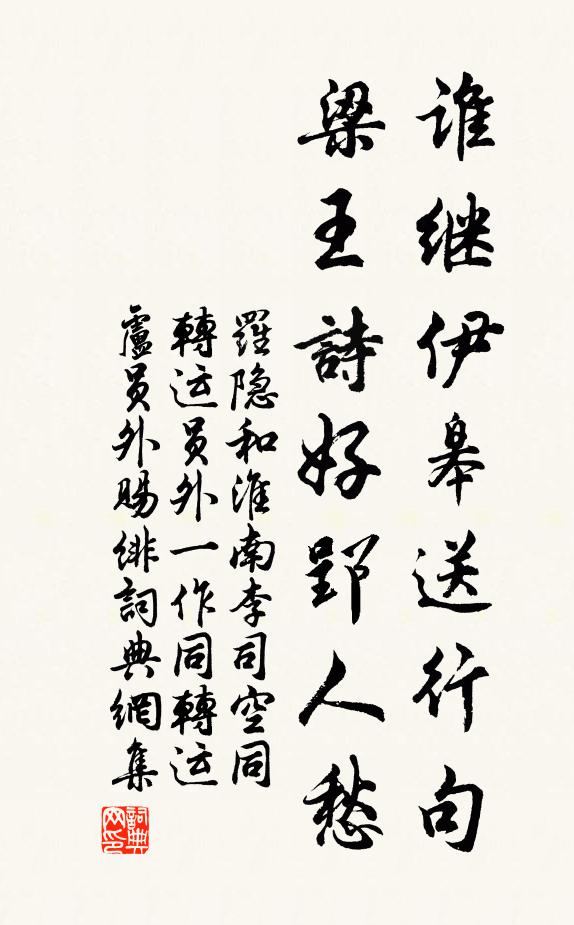 谁继伊皋送行句
梁王詩好郢人愁
羅隐和淮南李司空同
轉运员外一作同轉运
盧员外賜緋詞典網集
詞典网印